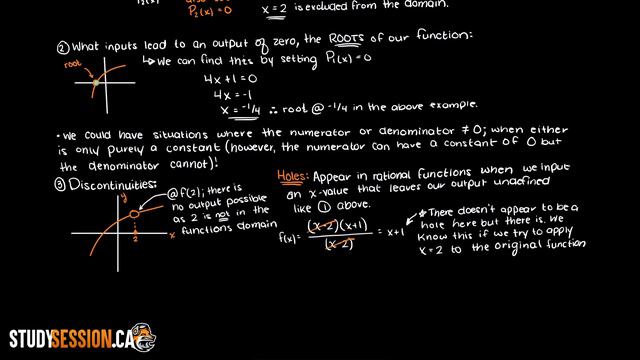 P₂(x)=0
x=2 is excluded from the domain.
② What inputs lead to an output of zero, the ROOTS of our function:
root
↳ We can find this by setting P₁(x)=0
4x+1=0
4x=-1
x=-1/4 ∴ root @ -1/4 in the above example.
• We could have situations where the numerator or denominator ≠0; when either
is only purely a constant (however, the numerator can have a constant of 0 but
the denominator cannot)!
③ Discontinuities:
y
x
2
@ f(2); there is
no output possible
as 2 is not in the
functions domain
Holes: Appear in rational functions when we input
an x-value that leaves our output undefined
like ① above.
f(x)= (x-2)(x+1) / (x-2) = x+1
* There doesn't appear to be a
hole here but there is. We
know this if we try to apply
x=2 to the original function
STUDYSESSION.CA